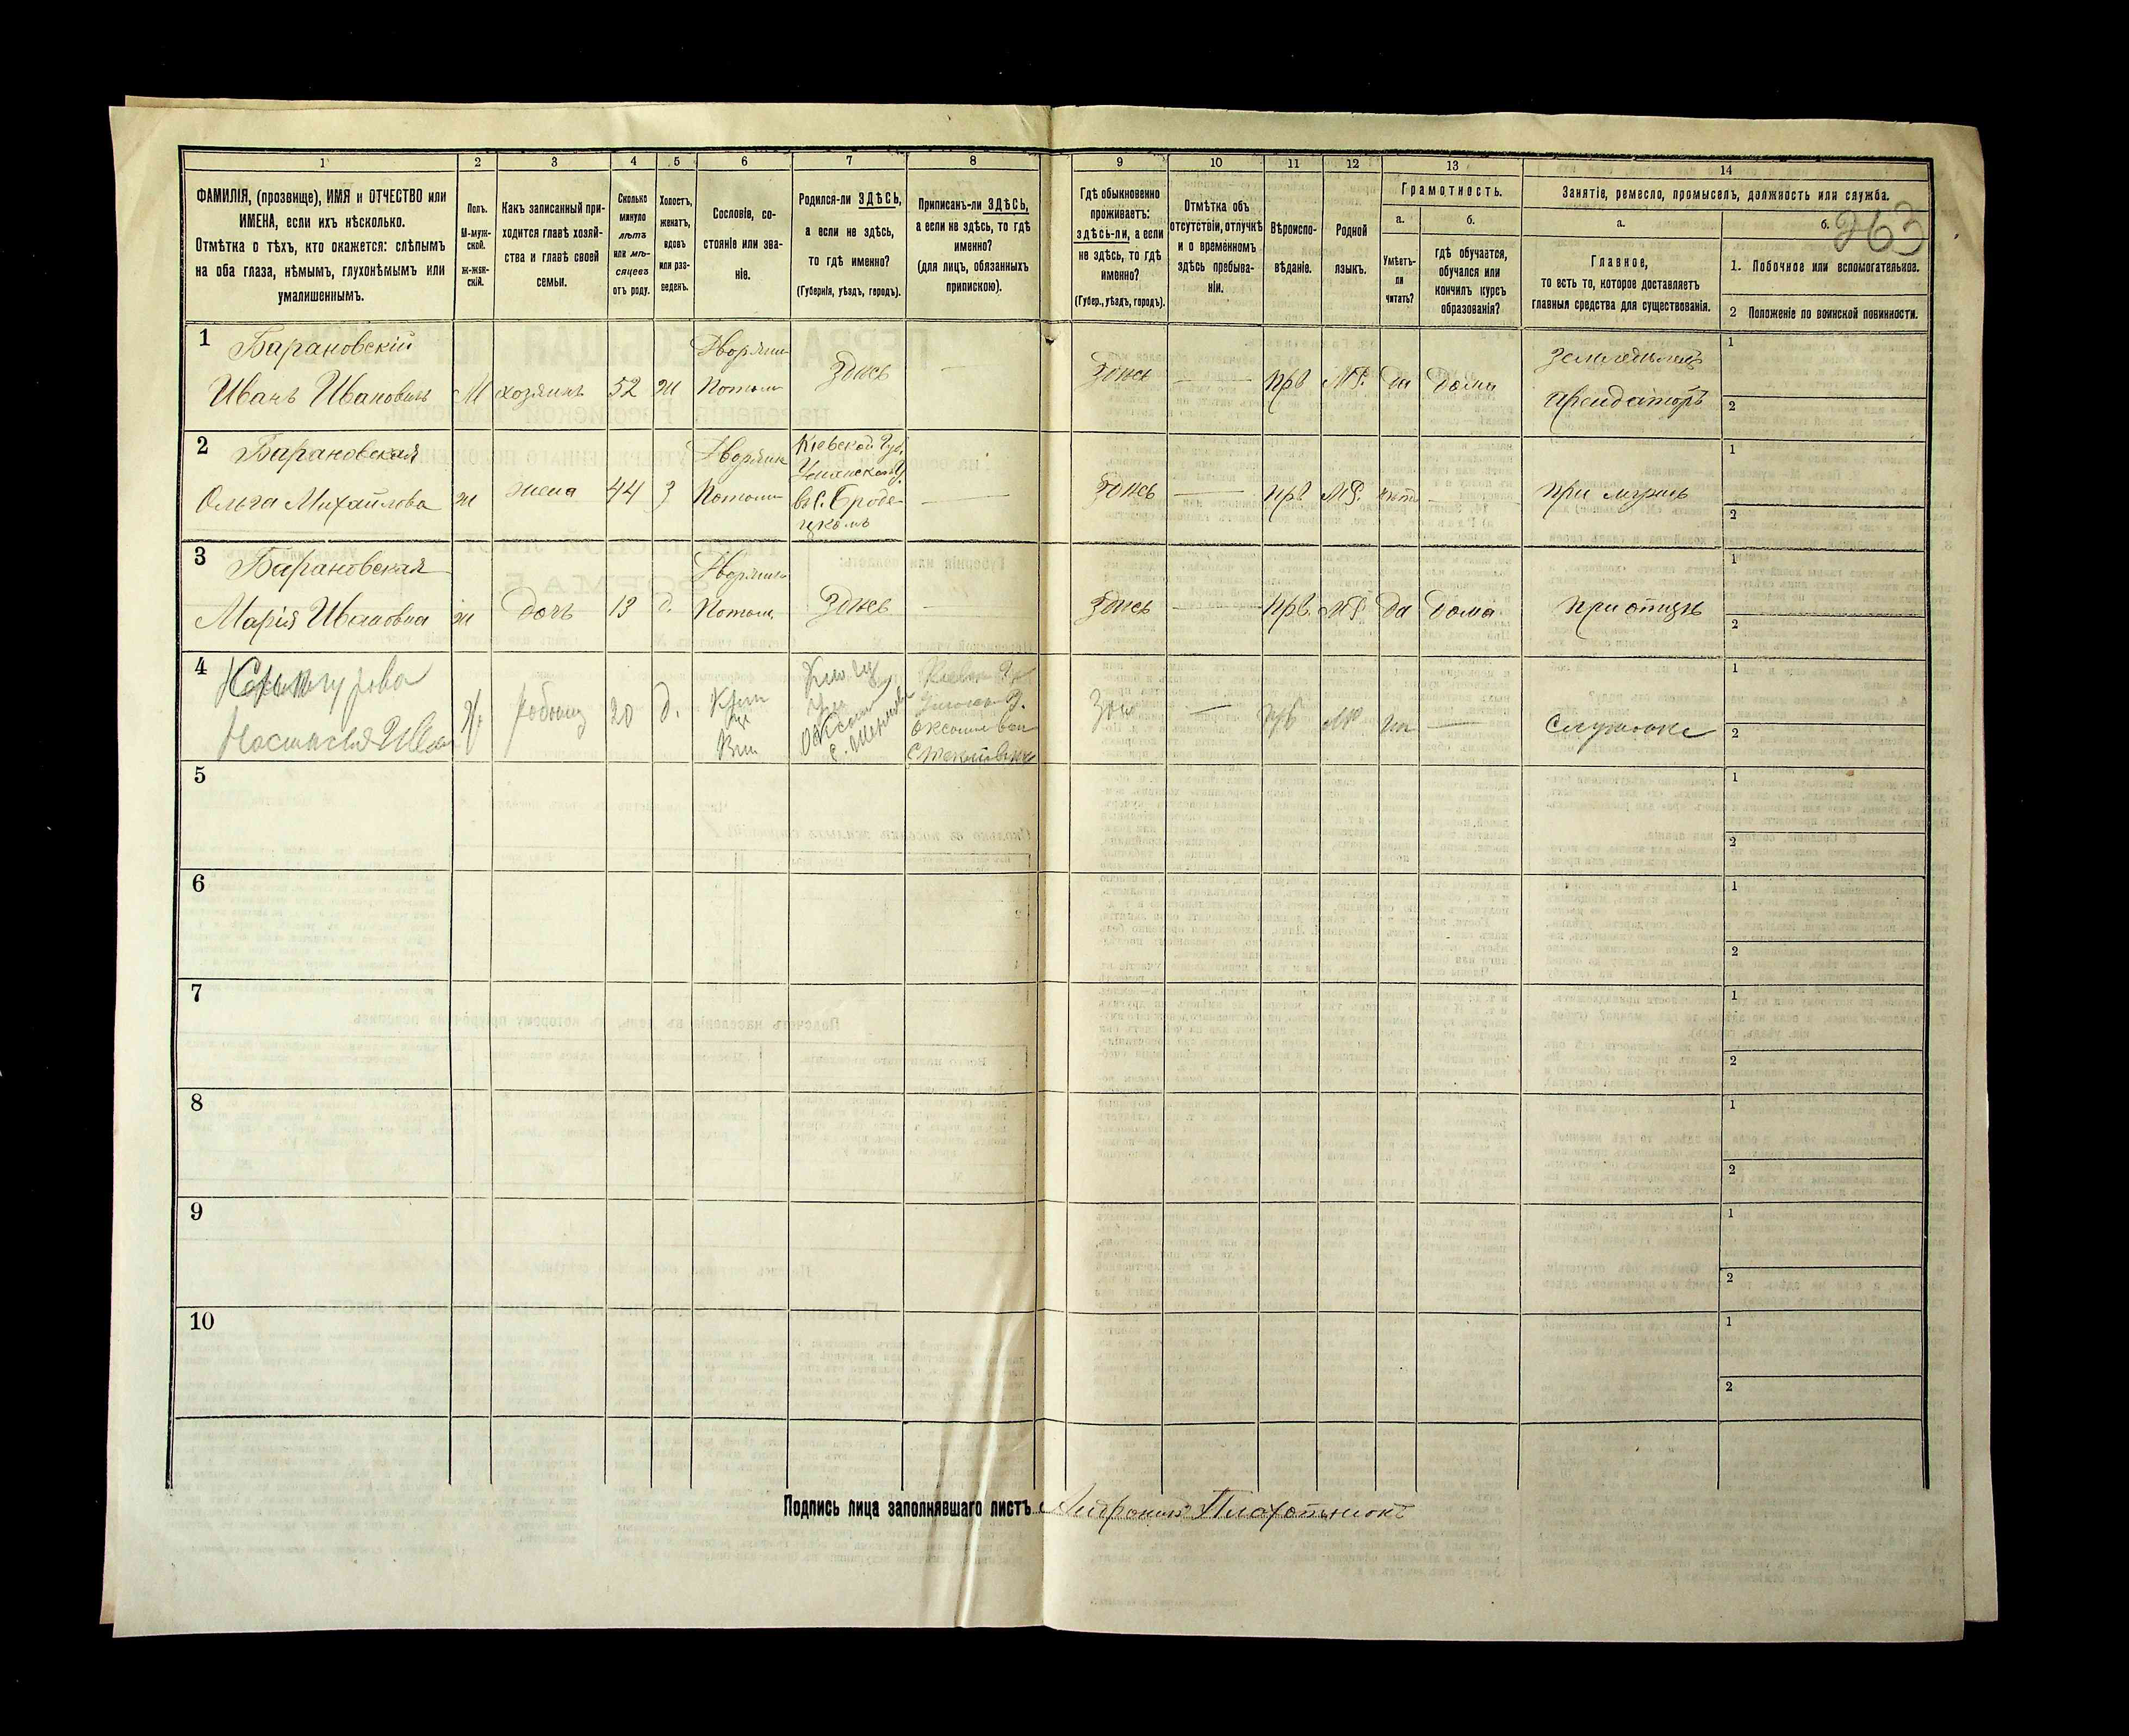 1 2 3 4 5 6 7 8 9 10 11 12 13 14
ФАМИЛІЯ, (прозвище), ИМЯ и ОТЧЕСТВО или
ИМЕНА, если ихъ нѣсколько.
Отмѣтка о тѣхъ, кто окажется: слѣпымъ
на оба глаза, нѣмымъ, глухонѣмымъ или
умалишеннымъ.
Полъ.
М-муж-
ской.
Ж-жен-
скій.
Какъ записанный при-
ходится главѣ хозяй-
ства и главѣ своей
семьи.
Сколько
минуло
лѣтъ
или мѣ-
сяцевъ
отъ роду.
Холостъ,
женатъ,
вдовъ
или раз-
веденъ.
Сословіе, со-
стояніе или зва-
ніе.
Родился-ли ЗДѢСЬ,
а если не здѣсь,
то гдѣ именно?
(Губернія, уѣздъ, городъ).
Приписанъ-ли ЗДѢСЬ,
а если не здѣсь, то гдѣ
именно?
(для лицъ, обязанныхъ
припискою).
Гдѣ обыкновенно
проживаетъ:
здѣсь-ли, а если
не здѣсь, то гдѣ
именно?
(Губер., уѣздъ, городъ).
Отмѣтка объ
отсутствіи, отлучкѣ
и о временномъ
здѣсь пребыва-
ніи.
Вѣроиспо-
вѣданіе.
Родной
языкъ.
Грамотность.
а.
Умѣетъ-
ли
читать?
б.
гдѣ обучается,
обучался или
кончилъ курсъ
образованія?
Занятіе, ремесло, промыселъ, должность или служба.
а.
Главное,
то есть то, которое доставляетъ
главныя средства для существованія.
б.
263
1. Побочное или вспомогательное.
2 Положеніе по воинской повинности.
1 Барановскій
Иванъ Ивановичъ
М хозяинъ 52 ж
Дворянин
Потом
Здѣсь
—
Здѣсь — прв М.Р. да дома
Земледѣлецъ
Арендаторъ
1
2
2 Барановская
Ольга Михайлова
ж жена 44 з
Дворянин
Потом
Кіевской Губ.
Уманскаго У.
—
Здѣсь — прв М.Р. нѣтъ —
при мужѣ
1
2
3 Барановская
Марія Ивановна
ж дочь 13 д.
Дворянин
Потом.
Здѣсь
—
Здѣсь — прв. М.Р. да дома
при отцѣ
1
2
4
Ж. 20 д.
—
—
1
2
5
1
2
6
1
2
7
1
2
8
1
2
9
1
2
10
1
2
Подпись лица заполнявшаго листъ